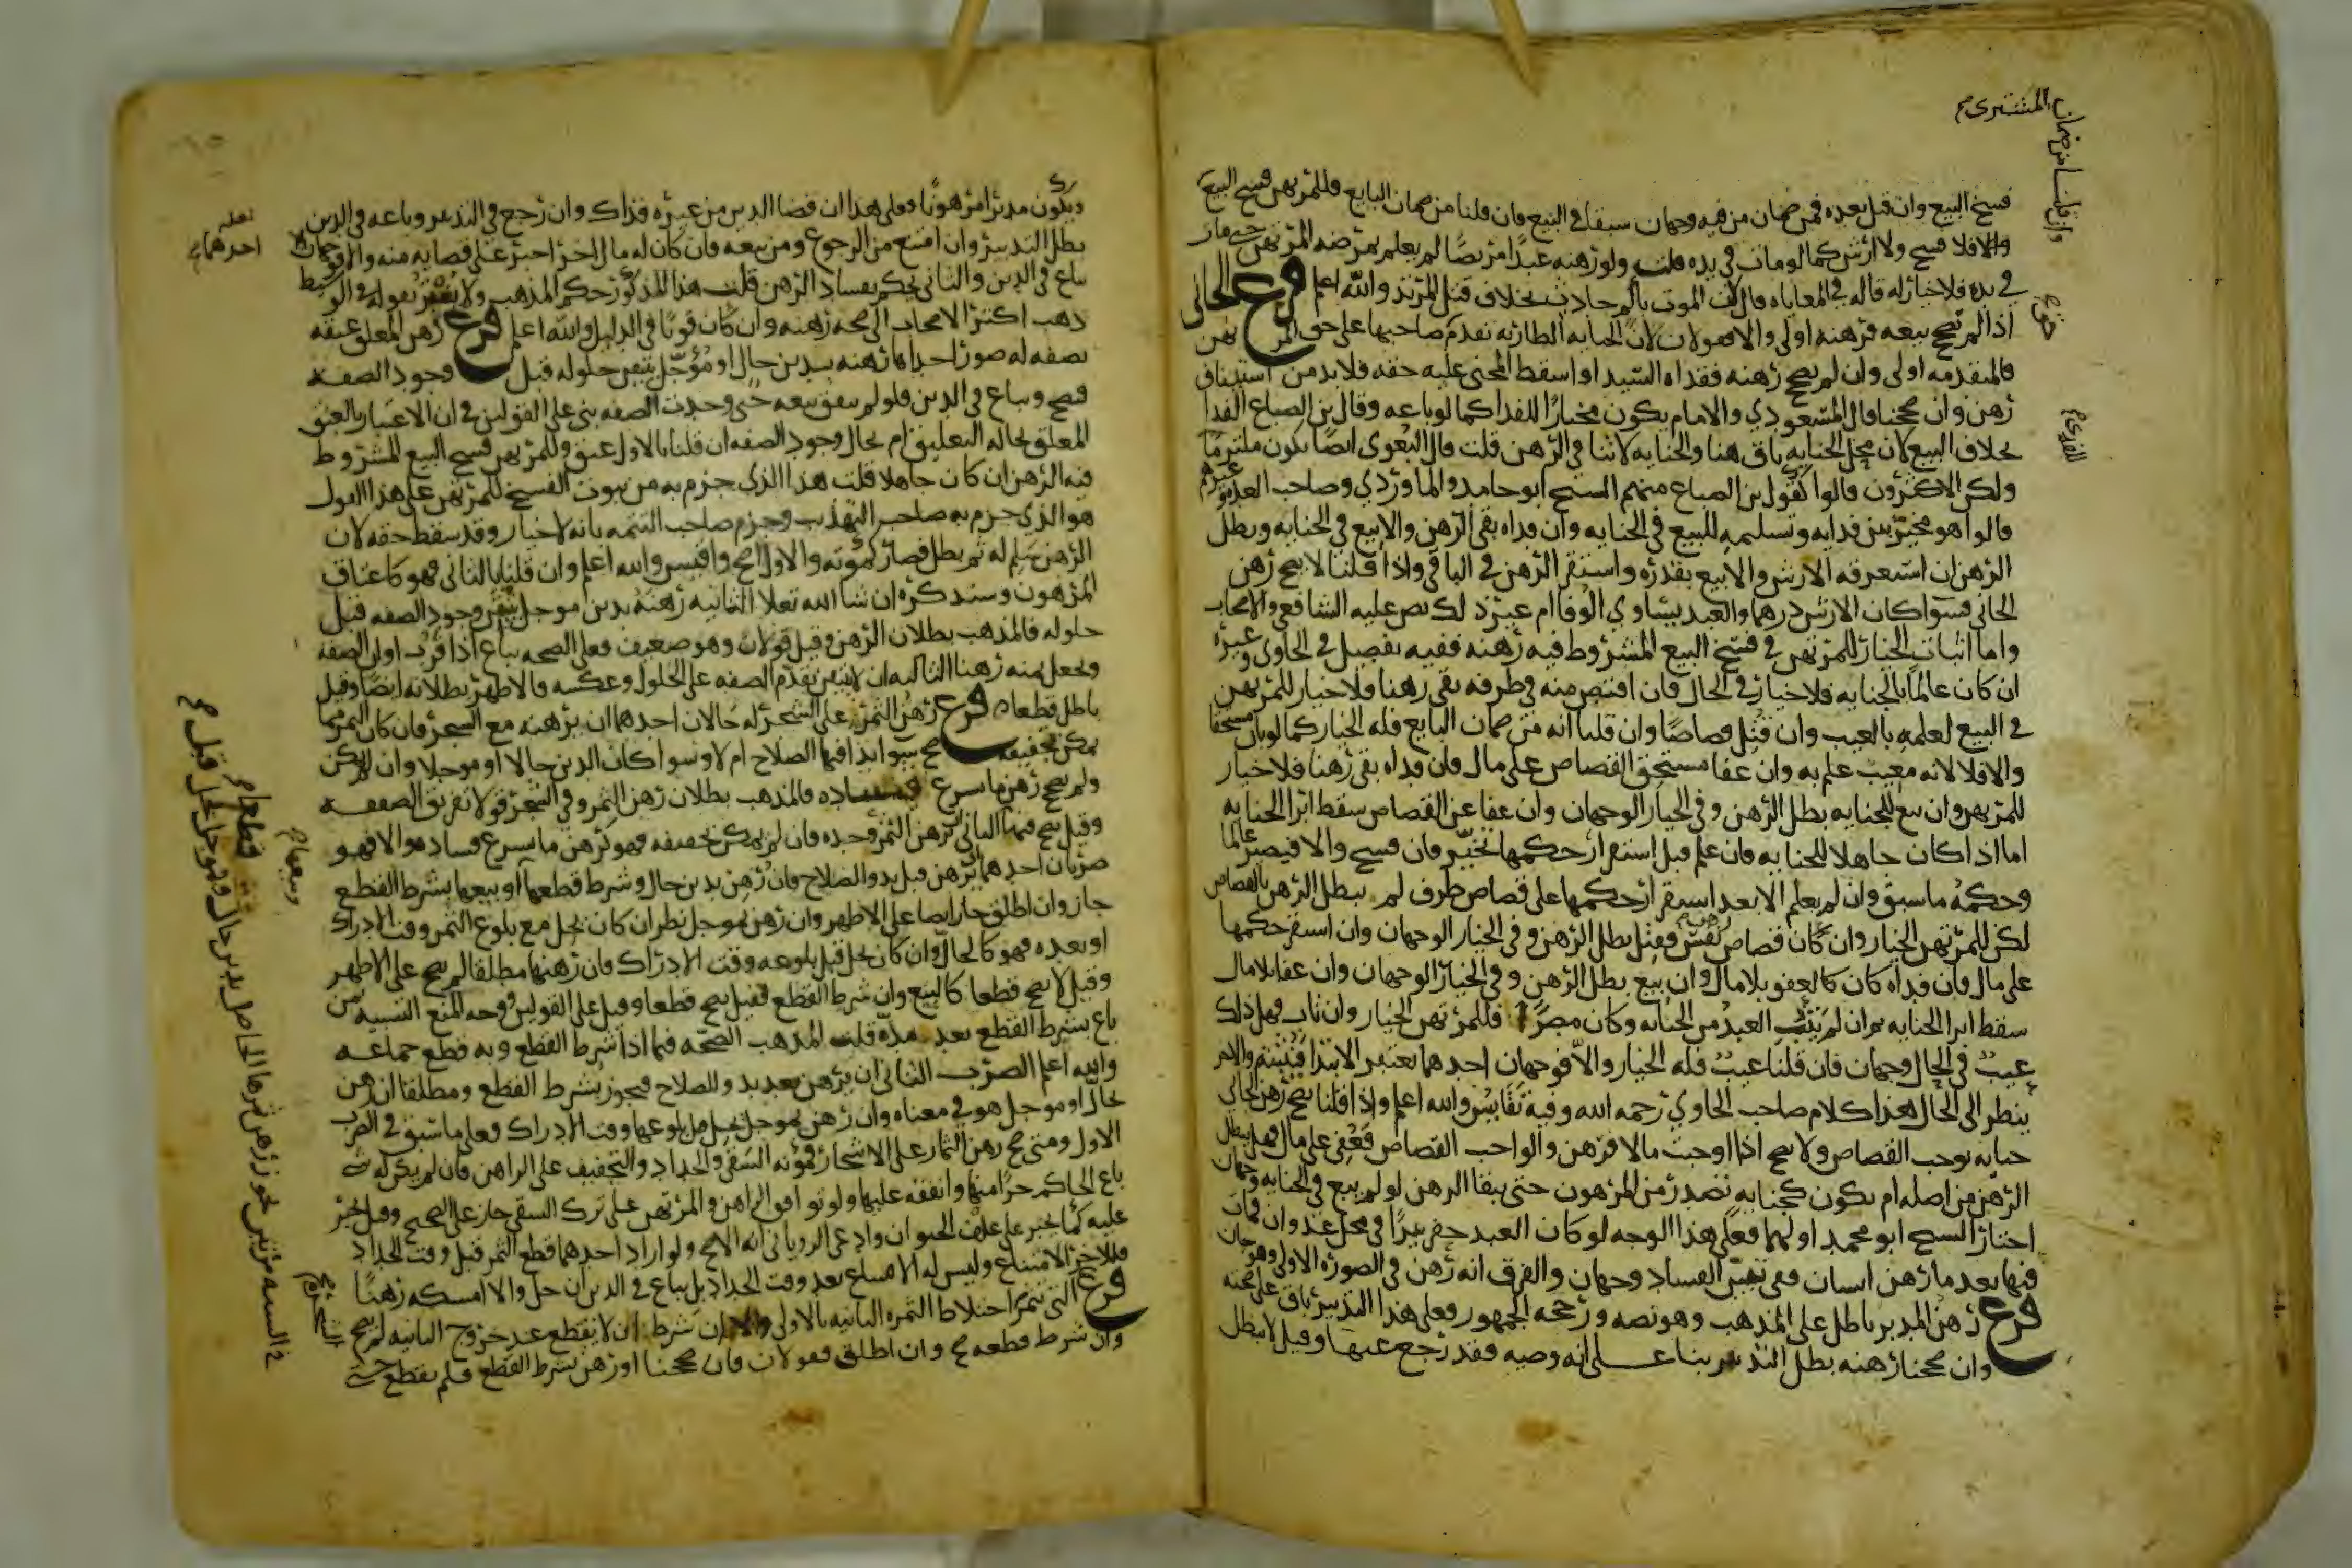 فسخ البيع وان قبل بعده فمن ضمان من فيه وجهان سبقا في البيع فان قلنا من ضمان البايع فللمرتهن فسخ البيع
وان قلنا من ضمان المشتري
والا فلا فسخ ولا ارش كما لو مات في يده قلت ولو رهنه عبدا مريضا لم يعلم بمرضه المرتهن حتى مات
في يده فلا خيار له قاله في المعاياه قال لان الموت بالم حادث بخلاف قتل المرتد والله اعلم فرع الجاني
اذا لم نصحح بيعه فرهنه اولى والا فقولان لان الجنايه الطاريه تقدم صاحبها على حق المرتهن
فالمتقدمه اولى وان لم يصح رهنه ففداه السيد او اسقط المجني عليه حقه فلا بد من استيناف
رهن وان صححنا قال المسعودي والامام يكون مختارا للفدا كما لو باعه وقال بن الصباغ الفدا
بخلاف البيع لان محل الجنايه باق هنا والجنايه لا تنافي الرهن قلت قال البغوي ايضا يكون ملتزما
ولكن الاكثرون قالوا كقول بن الصباغ منهم الشيخ ابو حامد والماوردي وصاحب العده وغيرهم
قالوا هو مخير بين فدايه وتسليمه للبيع في الجنايه وان فداه بقي الرهن والا بيع في الجنايه وبطل
الرهن ان استغرقه الارش والا بيع بقدره واستقر الرهن في الباقي واذا قلنا لا يصح رهن
الجاني فسوا كان الارش درهما والعبد يساوي الوفا ام غير ذلك نص عليه الشافعي والاصحاب
واما اثبات الخيار للمرتهن في فسخ البيع المشروط فيه رهنه ففيه تفصيل في الحاوي وغيره
ان كان عالما بالجنايه فلا خيار في الحال فان اقتص منه في طرفه بقي رهنا ولا خيار للمرتهن
في البيع لعلمه بالعيب وان قتل قصاصا وان قلنا انه من ضمان البايع فله الخيار كما لو بان مستحقا
والا فلا لانه معيب علم به وان عفا مستحق القصاص على مال فان فداه بقي رهنا فلا خيار
للمرتهن وان بيع للجنايه بطل الرهن وفي الخيار الوجهان وان عفا عن القصاص سقط اثر الجنايه
اما اذا كان جاهلا للجنايه فان علم قبل استقرار حكمها تخير فان فسخ والا فيصير عالما
وحكمه ما سبق وان لم يعلم الا بعد استقرار حكمها على قصاص طرف لم يبطل الرهن بالقصاص
لكن للمرتهن الخيار وان كان قصاص نفس فقتل بطل الرهن وفي الخيار الوجهان وان استقر حكمها
على مال فان فداه كان كالعفو بلا مال وان بيع بطل الرهن وفي الخيار الوجهان وان عفا بلا مال
سقط اثر الجنايه ثم ان لم يتب العبد من الجنايه وكان مصرا فللمرتهن الخيار وان تاب فهل ذلك
عيب في الحال وجهان فان قلنا عيب فله الخيار والا فوجهان احدهما يعتبر الابتدا فيثبت والاخر
ينظر الى الحال هذا كلام صاحب الحاوي رحمه الله وفيه نفايس والله اعلم واذا قلنا يصح رهن الجاني
جنايه توجب القصاص ولا يصح اذا اوجبت مالا فرهن والواجب القصاص فعفي على مال فهل يبطل
الرهن من اصله ام يكون كجنايه تصدر من المرهون حتى يبقا الرهن لو لم يبع في الجنايه وجهان
اختار الشيخ ابو محمد اولهما فعلى هذا الوجه لو كان العبد حفر بيرا في محل عدوان فمات
فيها بعد ما رهن انسان ففي تبين الفساد وجهان والفرق انه رهن في الصوره الاولى وهو جان
فرع رهن المدبر باطل على المذهب وهو نصه ورجحه الجمهور فعلى هذا التدبير باق على صحته
وان صححنا رهنه بطل التدبير بنا على انه وصيه فقد رجع عنها وقيل لا يبطل
ويكون مدبرا مرهونا فعلى هذا ان قضا الدين من غيره فذاك وان رجع في التدبير وباعه في الدين
بطل التدبير وان امتنع من الرجوع ومن بيعه فان كان له مال اخر اجبر على قضايه منه والا فوجهان احدهما
يباع في الدين والثاني يحكم بفساد الرهن قلت هذا المذكور حكم المذهب ولا يغتر بقوله في الوسيط
ذهب اكثر الاصحاب الى صحه رهنه وان كان قويا في الدليل والله اعلم فرع رهن المعلق عتقه
بصفه له صور احداها رهنه بدين حال او مؤجل يتيقن حلوله قبل وجود الصفه
فيصح ويباع في الدين فلو لم يتفق بيعه حتى وجدت الصفه بني على القولين في ان الاعتبار بالعتق
المعلق بحاله التعليق ام بحال وجود الصفه ان قلنا بالاول عتق وللمرتهن فسخ البيع المشروط
فيه الرهن ان كان جاهلا قلت هذا الذي جزم به من ثبوت الفسخ للمرتهن على هذا القول
هو الذي جزم به صاحب التهذيب وجزم صاحب التتمه بانه لا خيار وقد سقط حقه لان
الرهن سلم له ثم بطل فصار كموته والاول اصح واقيس والله اعلم وان قلنا بالثاني فهو كاعتاق
المرهون وسنذكره ان شا الله تعلا الثانيه رهنه بدين موجل يتيقن وجود الصفه قبل
حلوله فالمذهب بطلان الرهن وقيل قولان وهو ضعيف فعلى الصحه يباع اذا قرب اوان الصفه
ويجعل ثمنه رهنا الثالثه ان لا يتيقن تقدم الصفه على الحلول وعكسه فالاظهر بطلانه ايضا وقيل
باطل قطعا فرع رهن الثمر على الشجر له حالان احدهما ان يرهنه مع الشجر فان كان الثمر مما
يمكن تجفيفه صح سوا بدا فيها الصلاح ام لا وسوا كان الدين حالا او موجلا وان لم يمكن
ولم يصح رهن ما يسرع فساده فالمذهب بطلان رهن الثمر وفي الشجر قولا تفريق الصفقه
وقيل يصح فيهما الثاني رهن الثمر وحده فان لم يمكن تجفيفه فهو كرهن ما يسرع فساده والا فهو
ضربان احدهما يرهن قبل بدو الصلاح فان رهن بدين حال وشرط قطعها او بيعها بشرط القطع
جاز وان اطلق جاز ايضا على الاظهر وان رهن بموجل نظر ان كان يحل مع بلوغ الثمر وقت الادراك
او بعده فهو كالحال وان كان يحل قبل بلوغه وقت الادراك فان رهنها مطلقا لم يصح على الاظهر
وقيل لا يصح قطعا كالبيع وان شرط القطع فقيل يصح قطعا وقيل على القولين ووجه المنع التشبيه بمن
باع بشرط القطع بعد مده قلت المذهب الصحه فيما اذا شرط القطع وبه قطع جماعه
والله اعلم الضرب الثاني ان يرهن بعد بدو الصلاح فيجوز بشرط القطع ومطلقا ان رهن
بحال او موجل هو في معناه وان رهن بموجل يحل قبل بلوغها وقت الادراك فعلى ما سبق في الضرب
الاول ومتى صح رهن الثمار على الاشجار فمؤنه السقي والجداد والتجفيف على الراهن فان لم يكن له شي
باع الحاكم جزا منها وانفقه عليها ولو توافق الراهن والمرتهن على ترك السقي جاز على الصحيح وقيل يجبر
عليه كما يجبر على علف الحيوان وادعى الروياني انه الاصح ولو اراد احدهما قطع الثمر قبل وقت الجداد
فللاخر الامتناع وليس له الامتناع بعد وقت الجداد بل يباع في الدين ان حل والا امسكه رهنا
فرع الشجر التي تثمر احتلاط الثمره الثانيه بالاولى والا ان شرط ان لا يقطع عند خروج الثانيه لم يصح
وان شرط قطعه صح وان اطلق فقولان فان صححنا او رهن بشرط القطع فلم يقطع حتى